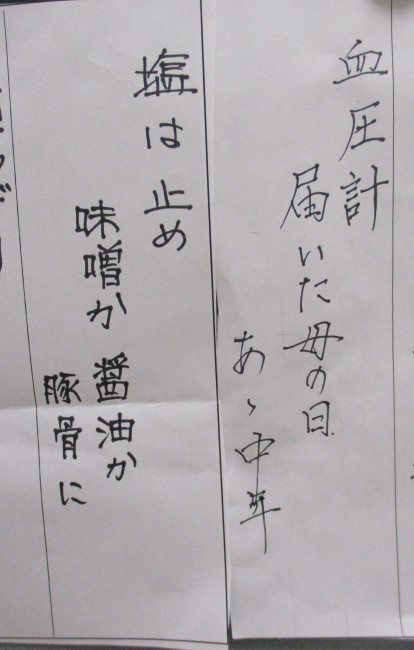 血圧計
届いた母の日
あゝ中年
塩は止め
味噌か醤油か
豚骨に